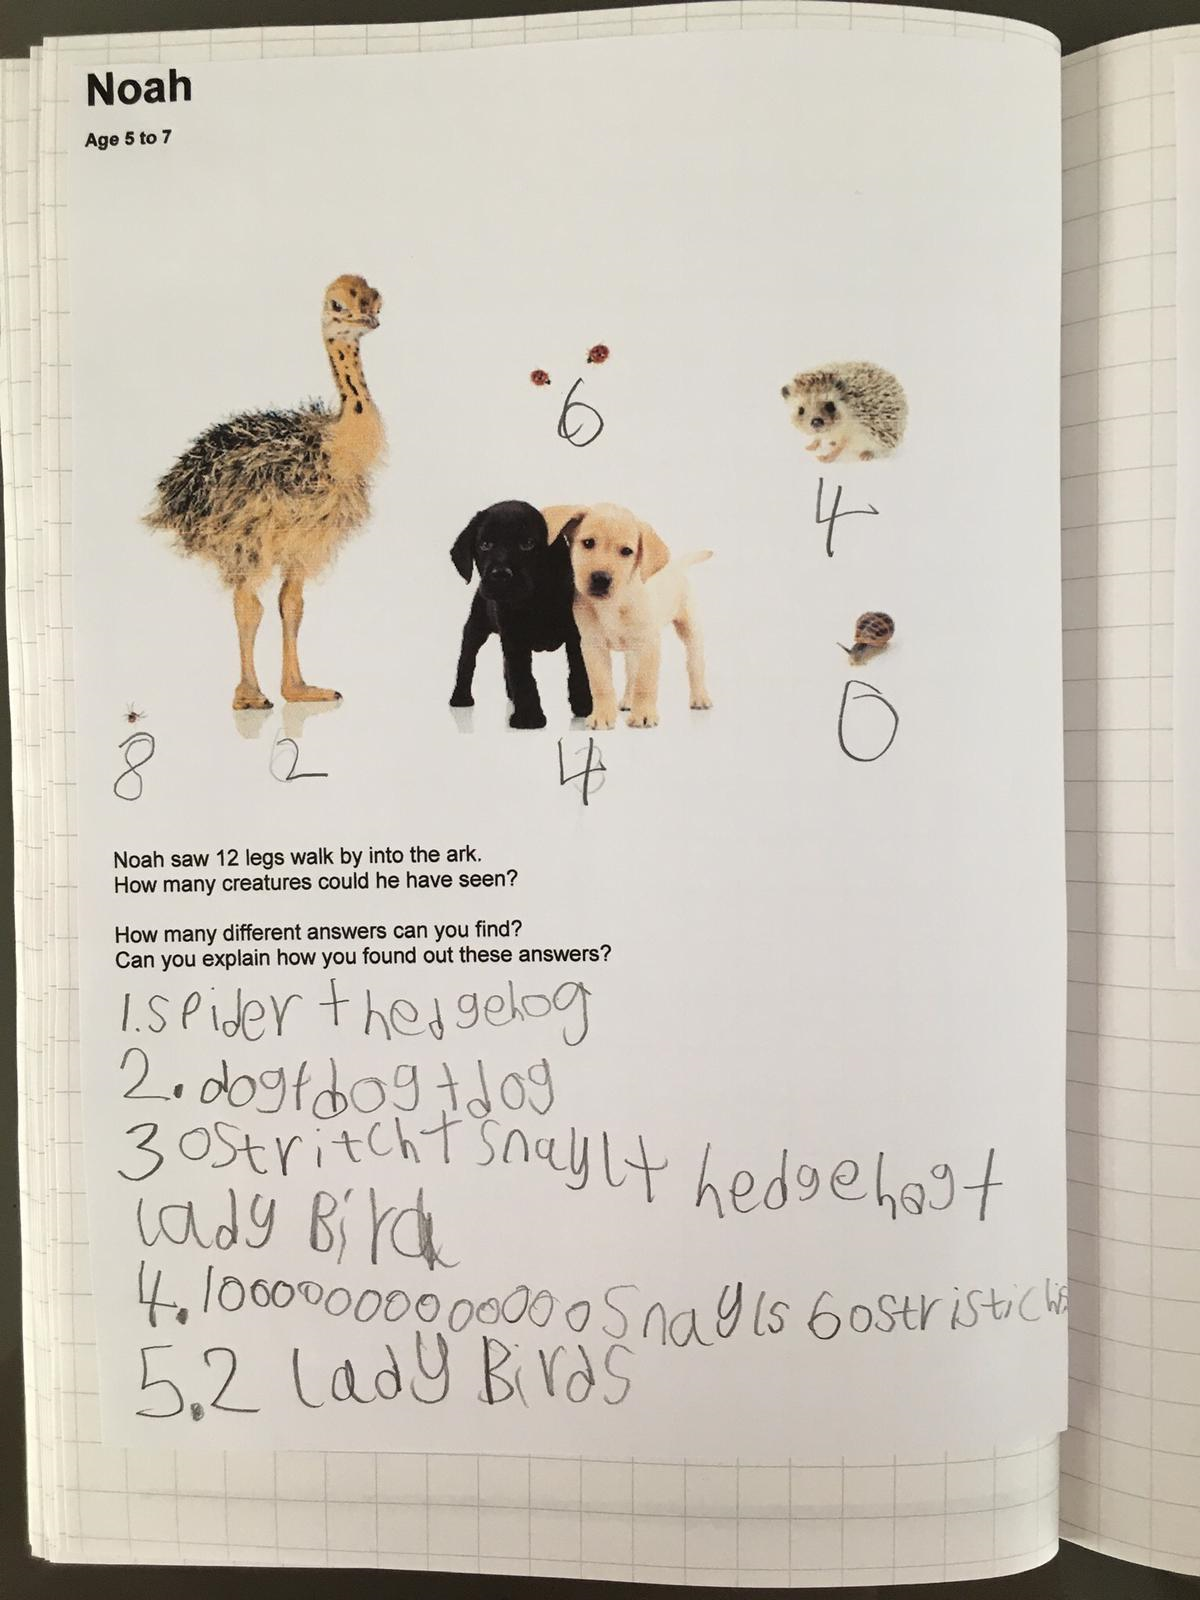 Noah
Age 5 to 7
6
4
0
8
2
4
Noah saw 12 legs walk by into the ark.
How many creatures could he have seen?
How many different answers can you find?
Can you explain how you found out these answers?
1. spider + hedgehog
2. dog + dog + dog
3 ostritch + snayl + hedgehog +
lady Bird
4. 10000000000000 snayls 6 ostristichis
5. 2 lady Birds